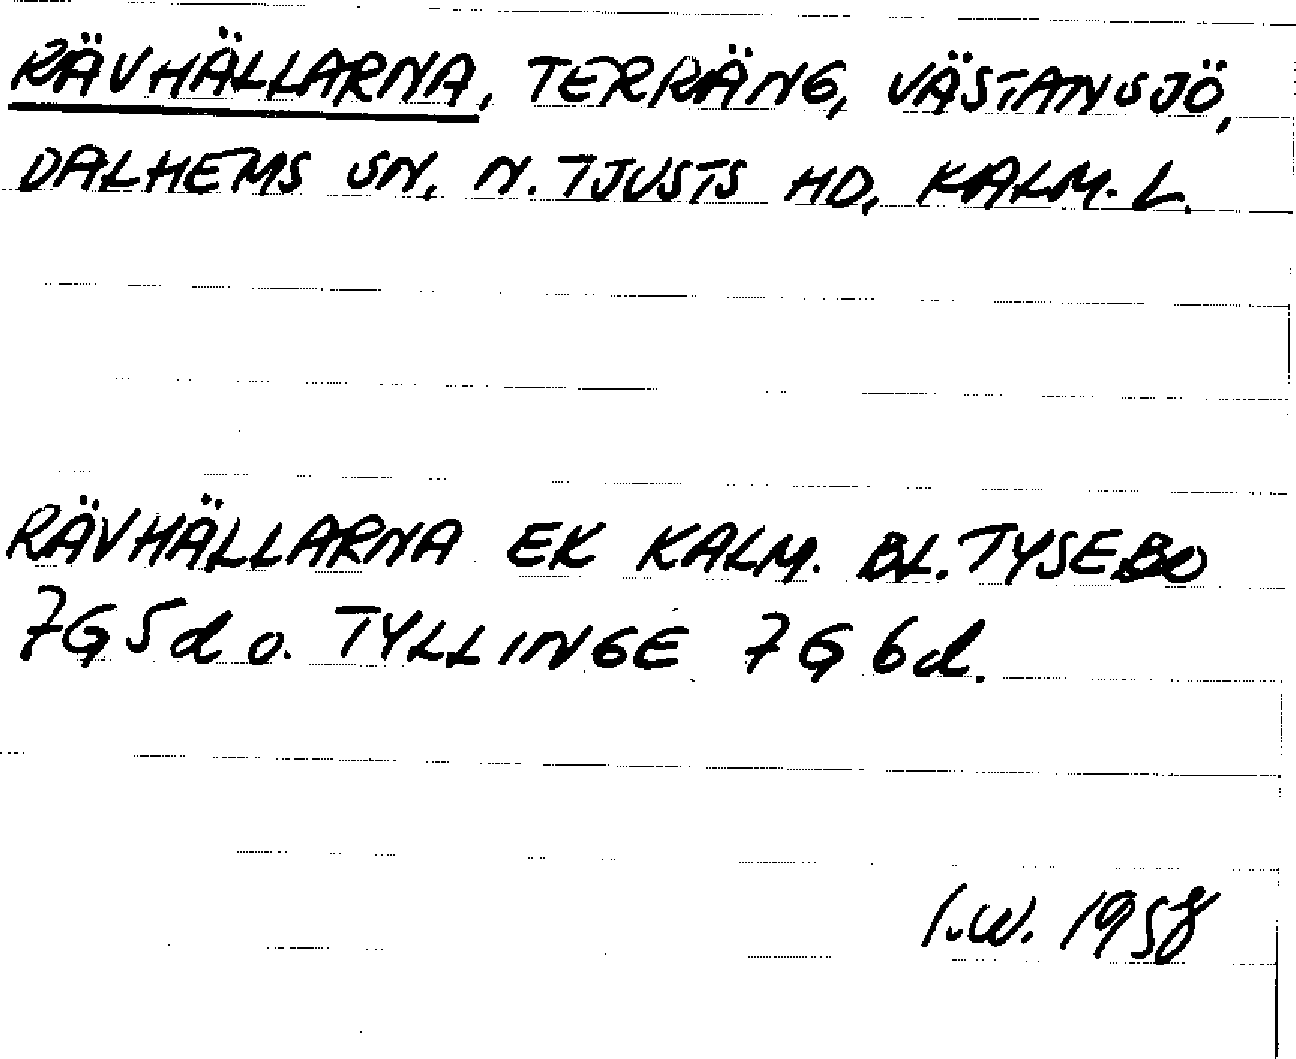 RÄVHÄLLARNA, TERRÄNG, VÄSTANSJÖ,
DALHEMS SN, N. TJUSTS HD, KALM. L.
RÄVHÄLLARNA EK KALM. BL. TYSEBO
7G5d o. TYLLINGE 7G6d.
I.W. 1958